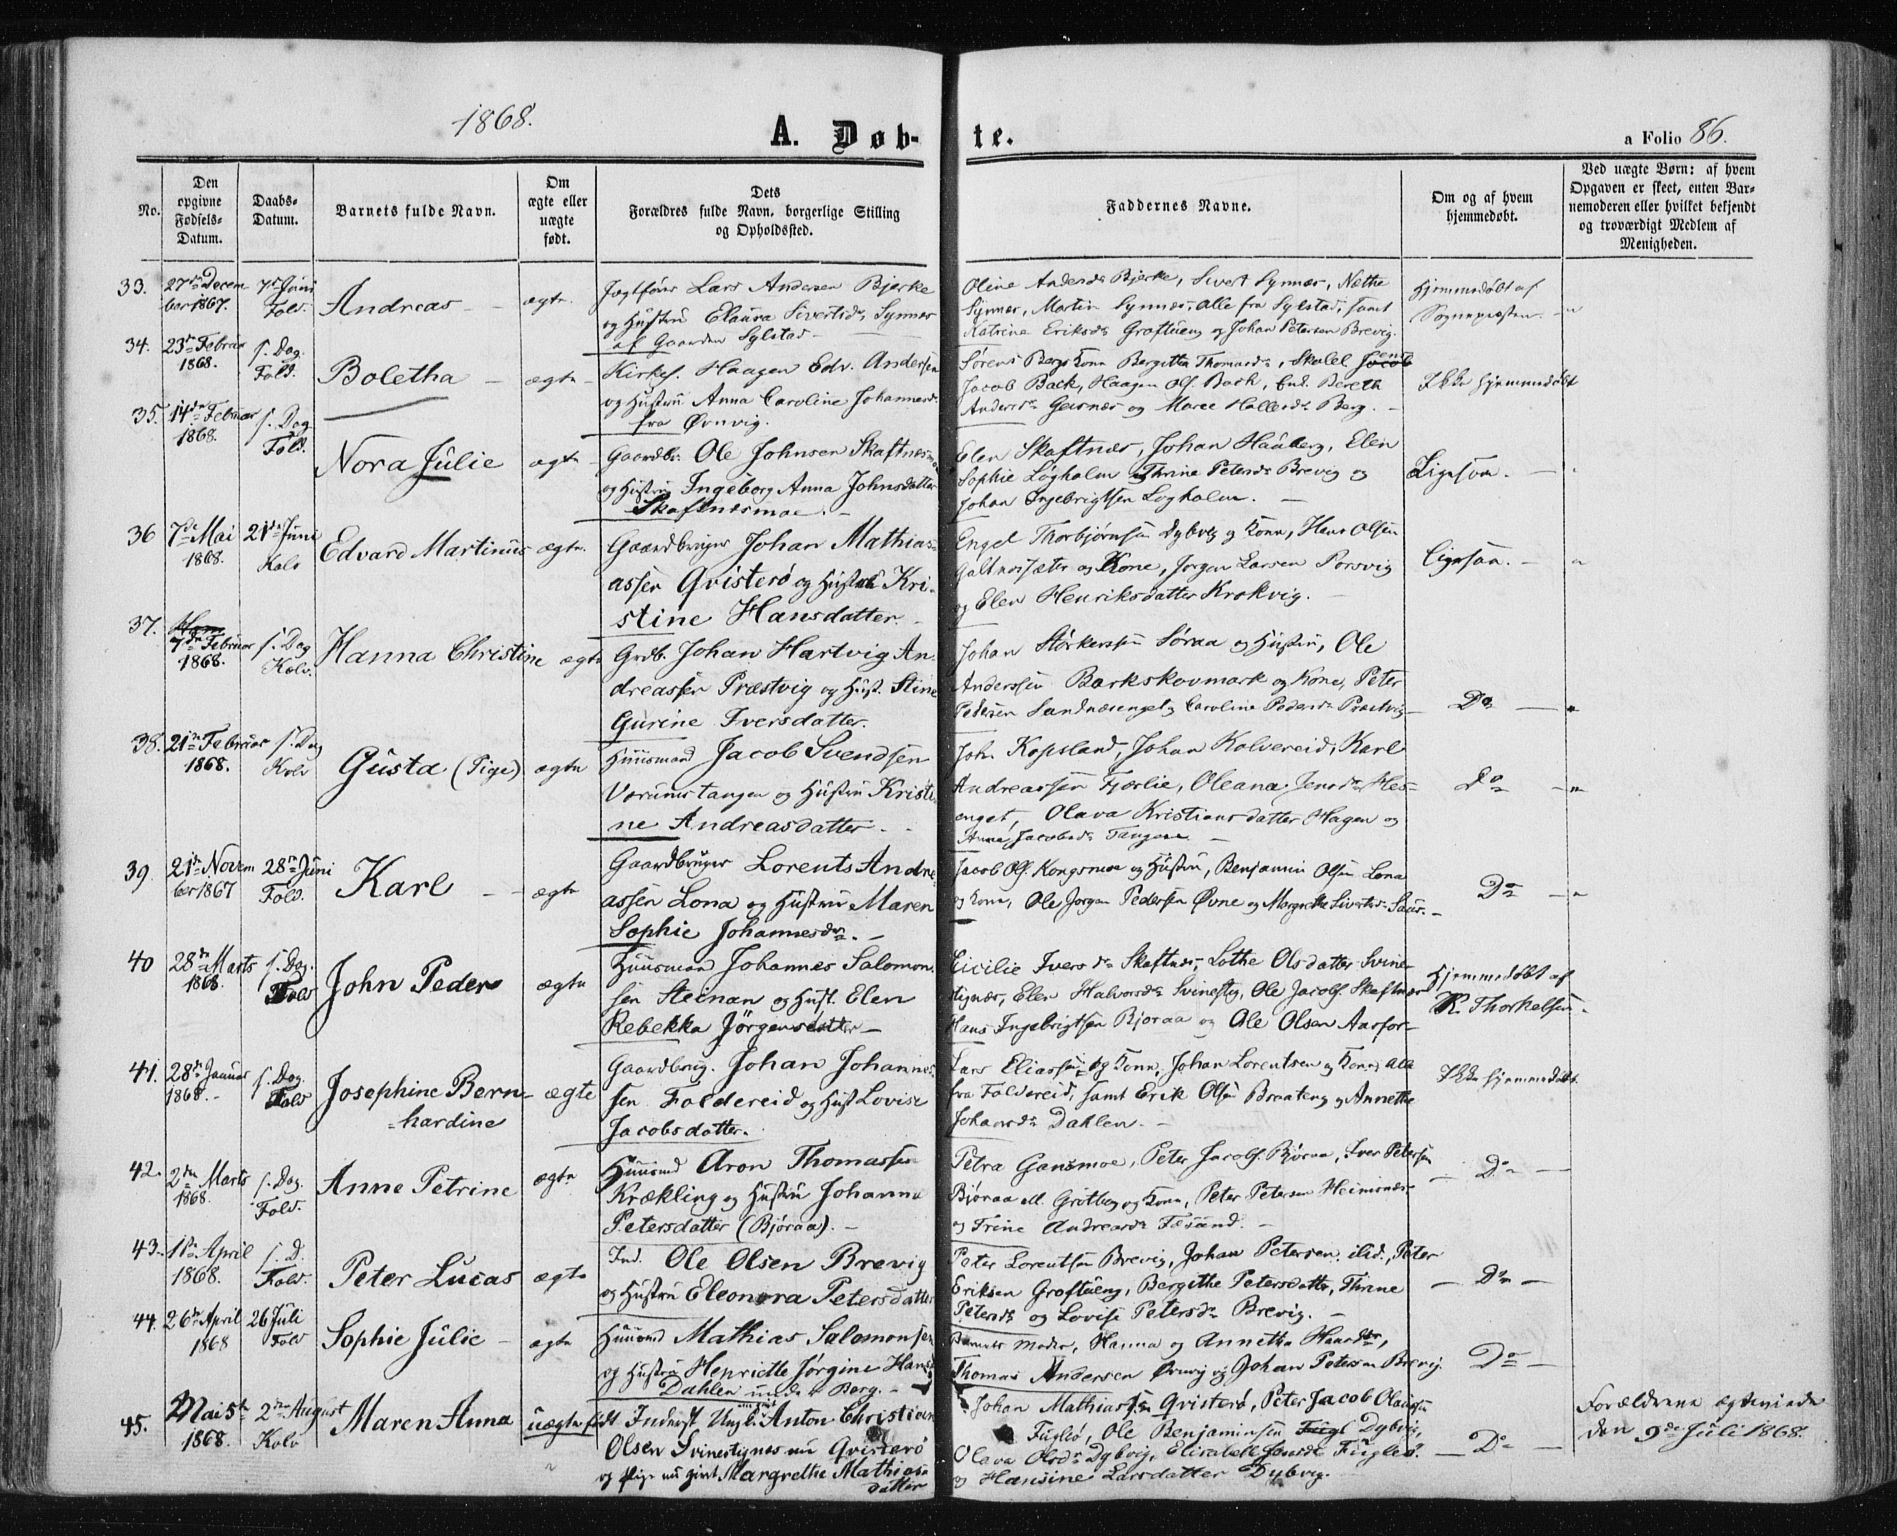 1868.
A. Døb-
te.
a Folio 86.
No.
Den
opgivne
Fødsels-
Datum.
Daabs-
Datum.
Barnets fulde Navn.
Om
ægte eller
uægte
født.
Dets
Forældres fulde Navn, borgerlige Stilling
og Opholdssted.
Faddernes Navne.
Om og af hvem
hjemmedøbt.
Ved uægte Børn: af hvem
Opgaven er skeet, enten Bar-
nemoderen eller hvilket bekjendt
og troværdigt Medlem af
Menigheden.
33.
27de Decem
ber 1867.
7de Juni
Fold.
Andreas
ægte
Lars Andersen Bjerke
og Hustru Elaura Sivertsdr Synnes
af Gaarden Sylstad
Oline Andersdr Bjerke, Sivert Synnes, Nethe
Synnes, Martin Synnes, Alle fra Sylstad, samt
Katrina Eriksdr Groftueng og Johan Petersen Brevig.
Hjemmedøbt af
Sognepræsten.
34.
23de Februar
1868.
s. Dag.
Fold.
Boletha
ægte
Kirkes. Haagen Edv. Andersen
og Hustru Anna Caroline Johannesdr
fra Øvnvig.
Sørens Berg Kone Bergitta Thomasdr, Skolel
Jacob Back, Haagen Ols. Back, Bereth
Andersdr Geisnes og Maree Hallesdr Berg.
Ikke hjemmedøbt
35.
14de Februar
1868.
s. Dag
Fold.
Nora Julie
ægte
Gaardbr. Ole Johnsen Skaftnesmo
og Hustru Ingeborg Anna Johnsdatter
Skaftnesmoe.
Elen Skaftnes, Johan Haaberg, Elen
Sophie Løgholm, Thrine Petersdr Brevig og
Johan Ingebrigtsen Løgholm.
Ligesom.
36
7de Mai
1868.
21de Juni
Kolv
Edvard Martinus
ægte.
Gaardbruger Johan Mathias-
assen Qvisterø og Hustru Kri-
stine Hansdatter.
Engel Thorbjørnsen Dybvig og Kone, Hans Olsen
Galtnessæter og Kone, Jørgen Larsen Porsvig
og Elen Henriksdatter Krokvig.
Ligesom.
37.
7de Februar
1868.
s. Dag
Kolv.
Hanna Christine
ægte
Grdb. Johan Hartvig An-
dreassen Præstvig og Hust. Stine
Gurine Iversdatter.
Johan Størkersen Søraa og Hustru, Ole
Anderssen Barkskovmark og Kone, Peter
Pedersen Sandnesenget og Caroline Pedersdr Præstvig
Do
38.
21de Februar
1868.
s. Dag
Kolv
Gusta (Pige)
ægte
Huusmand Jacob Svendsen
Vorumstangen og Hustru Kristi-
ne Andreasdatter.
John Kopsland, Johan Kolvereid, Karl
Andreassen Fjerlie, Oleana Jensdr Hes-
enget, Olava Kristiansdatter Hagen og
Anna Jacobsdr Tangene
Do
39.
21de Novem
ber 1867
28de Juni
Fold.
Karl
ægte
Gaardbruger Lorents Andre-
assen Lona og Hustru Maren
Sophie Johannesdr.
Jacob Ols. Kongsmoe og Hustru, Benjamin Olsen Lona
og Kone, Ole Jørgen Pedersen Øvne og Margrethe Sivertsdr
Do
40
28de Marts
1868.
s. Dag.
Fold
John Peder
ægte
Huusmand Johannes Salomon-
sen Steinan og Hust. Elen
Rebekka Jørgensdatter
Cicilie Iversdr Skaftnes, Lothe Olsdatter Svine-
stignes, Elen Halvorsdr Svinestig, Ole Jacobs. Skaftnes
Hans Ingebrigtsen Bjøraa og Ole Olsen Aarfor
Hjemmedøbt af
K. Thorkelsen.
41.
28de Januar
1868.
s. Dag.
Fold
Josephine Bern-
hardine
ægte
Gaardbrug. Johan Johannes-
sen Foldereid og Hust Lovise
Jacobsdatter.
Lars Eliassen og Kone, Johan Lorentsen og Kone, alle
fra Foldereid, samt Erik Olsen Braateng og Annetha
Johansdr Dahlen.
Ikke hjemmedøbt.
42.
2den Marts
1868.
s. Dag.
Fold.
Anne Petrine
ægte
Huusmd Aron Thomassen
Krækling og Hustru Johanna
Petersdatter (Bjøraa).
Petra Gansmoe, Peter Jacobs. Bjøraa, Iver Petersen
Bjøraa, ell. Grøtberg og Kone, Peter Petersen Heimsnes
og Trine Andreasdr Fæsand.
Do
43.
11te April
1868.
s. D.
Fold.
Peter Lucas
ægte
Ind. Ole Olsen Brevig
og Hustru Eleonora Petersdatter
Peter Lorentsen Brevig, Johan Petersen ibid., Peter
Eriksen Groftueng, Bergithe Petersdatter, Thrine
Petersdr og Lovise Petersdr Brevig.
Do
44.
26de April
1868
26 Juli
Fold
Sophie Julie
ægte
Huusmd Mathias Salomonsen
og Hustru Henriette Jørgine Hansdr
Dahlen under Berg.
Barnets Moder, Hanna og Annetha Hansdtr,
Thomas Andersen Øvnvig og Johan Petersen Brevig.
Do
45.
Mai 5te
1868.
2den August
Kolv
Maren Anna
uægte født
Inderst Ungk. Anton Christian
Olsen Svinestignes nu Qvisterø
og Pige nu givt Margrethe Mathias-
datter
Johan Mathiassen Qvisterø, Peter Jacob Olausen
Fuglø, Ole Benjaminsen Dybvig,
Olava Olsdr Dybvig, Elisabeth Fuglø
og Hansine Larsdatter Dybvig.
Do
Forældrene ægteviede
den 9de Juli 1868.